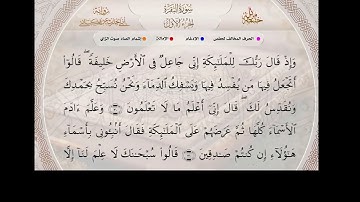 سورة البقرة
الجزء الأول
الحرف المخالف لحفص
الإدغام
الإمالة
إشمام الصاد صوت الزاي
وَإِذْ قَالَ رَبُّكَ لِلْمَلَٰٓئِكَةِ إِنِّي جَاعِلٌ فِي ٱلْأَرْضِ خَلِيفَةً ۖ قَالُوٓا۟
أَتَجْعَلُ فِيهَا مَن يُفْسِدُ فِيهَا وَيَسْفِكُ ٱلدِّمَآءَ وَنَحْنُ نُسَبِّحُ بِحَمْدِكَ
وَنُقَدِّسُ لَكَ ۖ قَالَ إِنِّيٓ أَعْلَمُ مَا لَا تَعْلَمُونَ ۝ وَعَلَّمَ ءَادَمَ
ٱلْأَسْمَآءَ كُلَّهَا ثُمَّ عَرَضَهُمْ عَلَى ٱلْمَلَٰٓئِكَةِ فَقَالَ أَنۢبِـُٔونِي بِأَسْمَآءِ
هَٰٓؤُلَآءِ إِن كُنتُمْ صَٰدِقِينَ ۝ قَالُوا۟ سُبْحَٰنَكَ لَا عِلْمَ لَنَآ إِلَّا